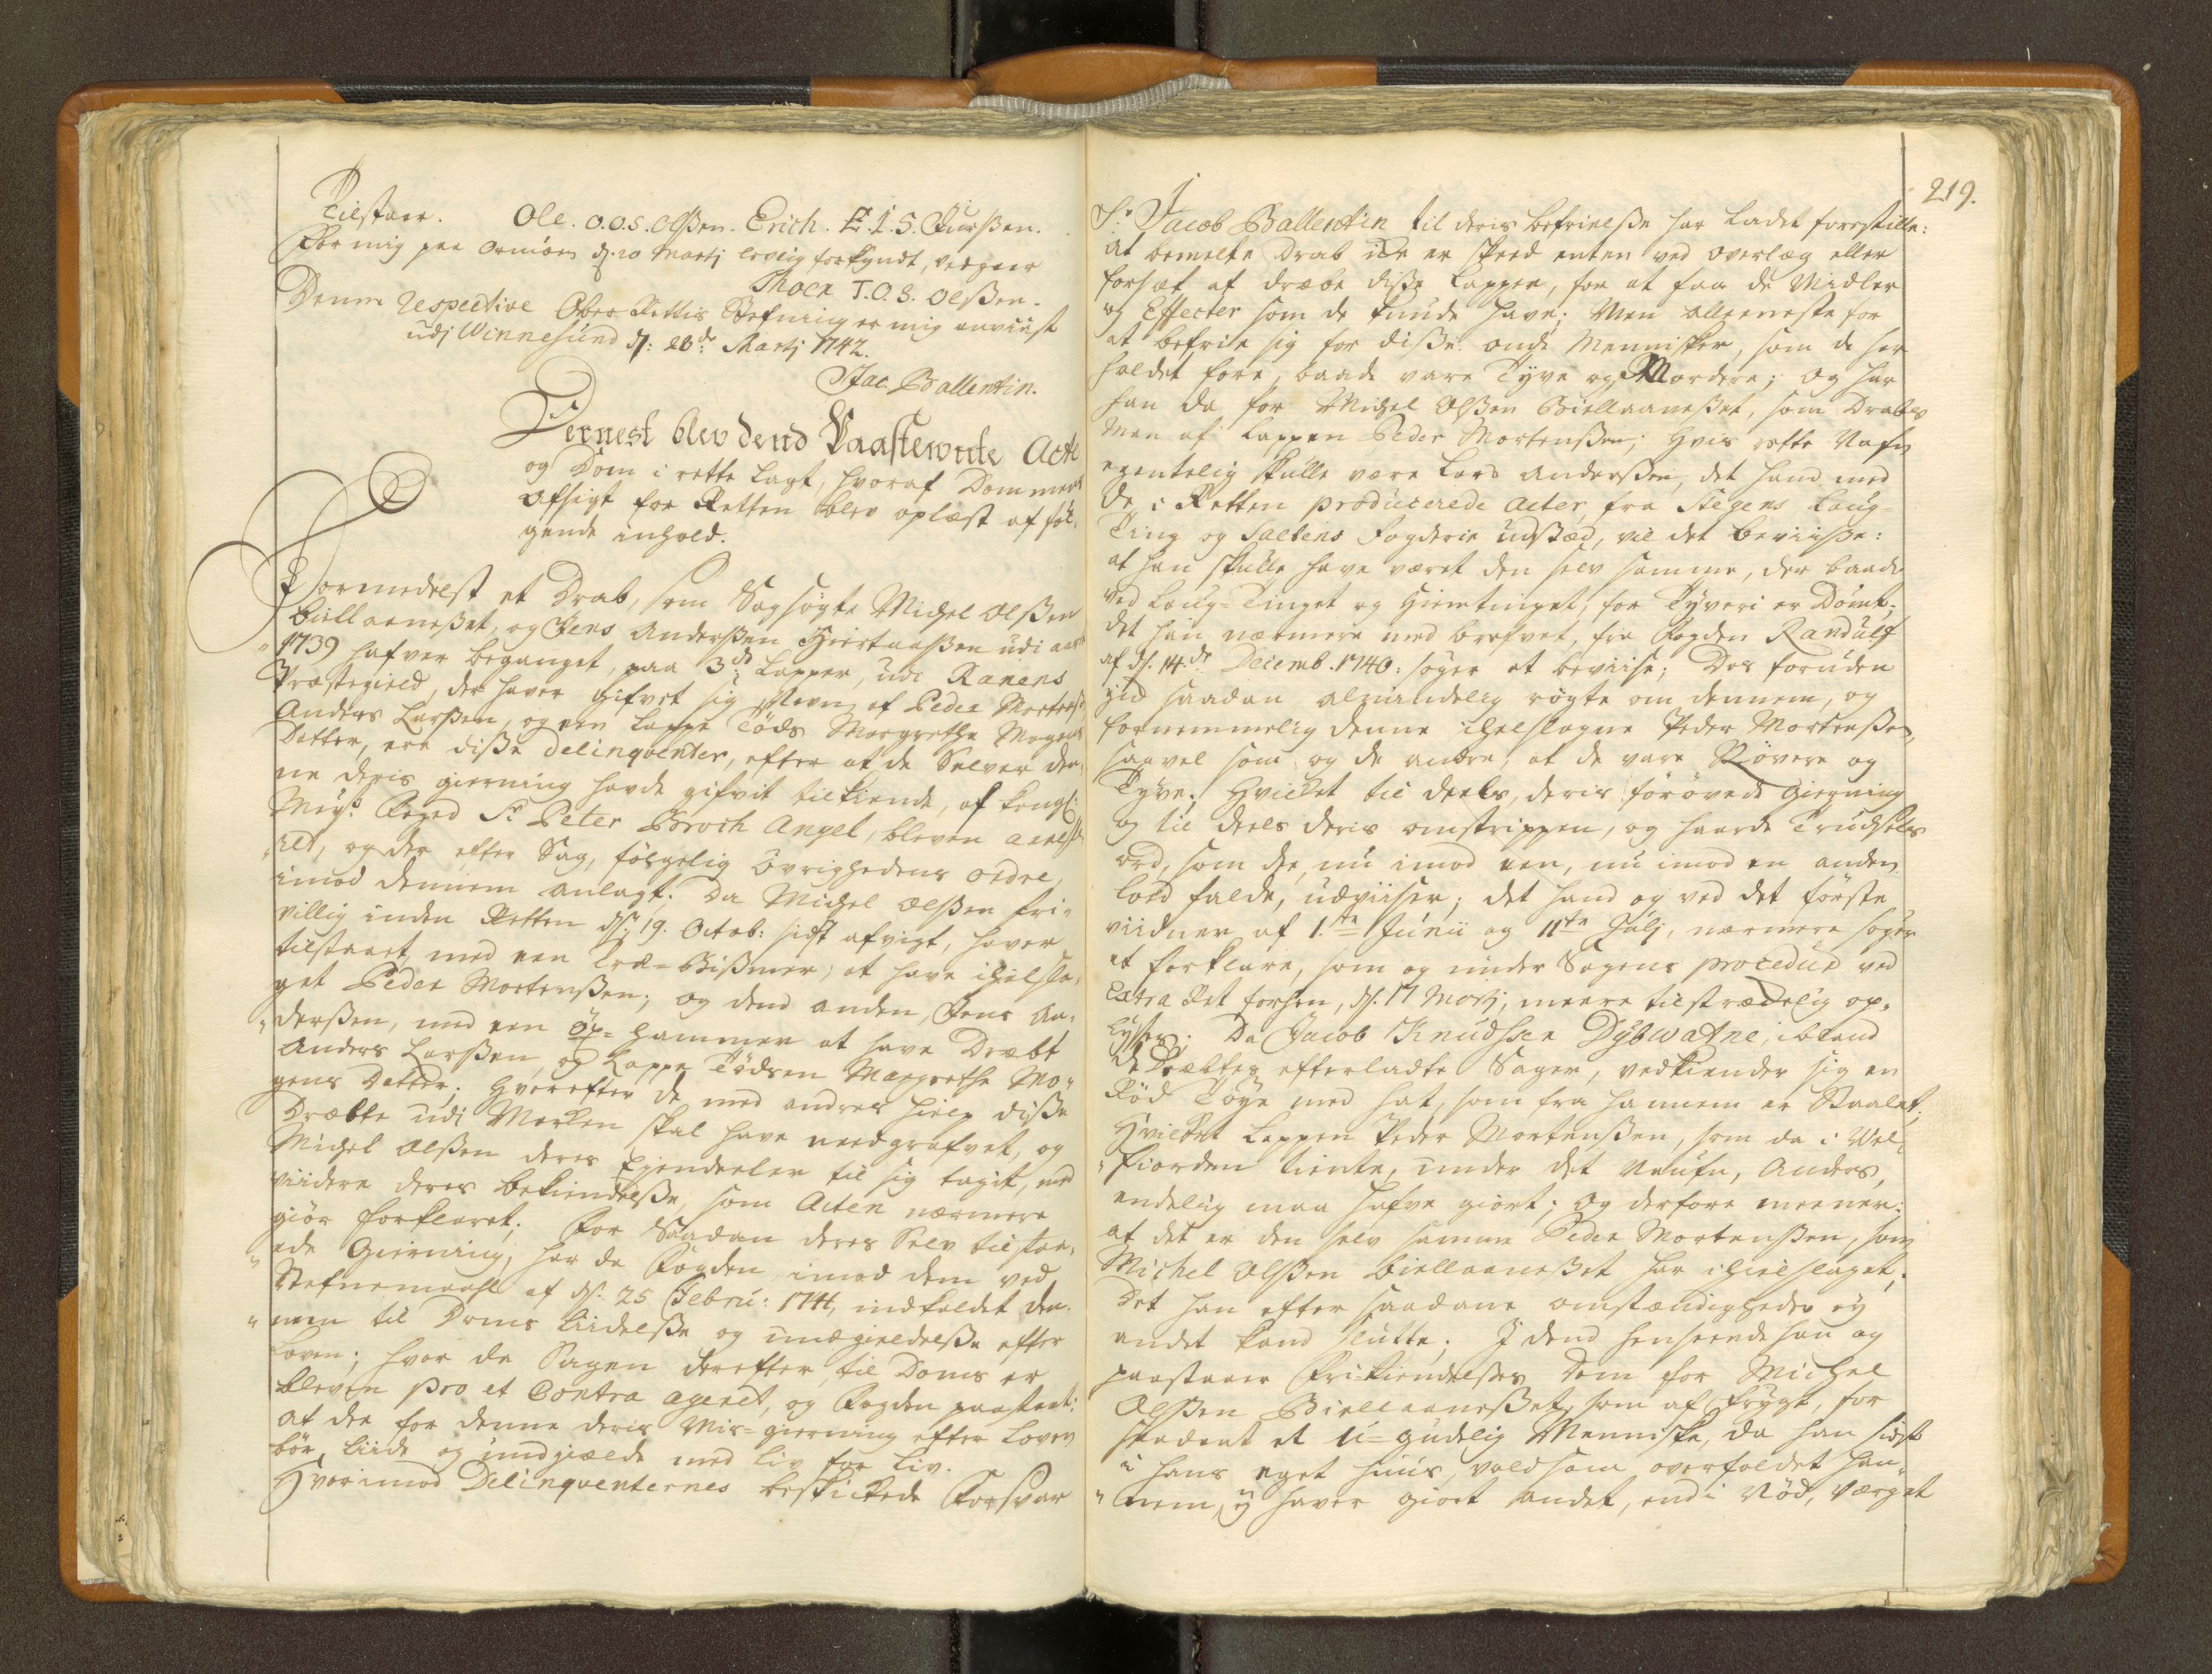 Tilstaar. Ole. O.O.S. Olßen. Erich. E.I.S. Iverßen.
For mig paa ormöen d. 10 Martj lovlig forkyndt, vedgaar
Thoer T.O.S. Olßen.
Denne respective Ober Rettis Stefning er mig anviist
udj Winnesund d: 28de Martj 1742.
Jac. Ballentin.
Dernest blev dend Paastewnte Acte
og Dom i rette lagt, hvoraf Dommens
Afsigt for Retten blev oplæst af föl-
gende inhold.
Formedelst et Drab, som Sagsögte Michel Olßen
Biellaaneßet, og Jens Anderßen Hiertaaßen udi aaret
1739 hafver beganget, paa 3de Lapper, udi Ranens
Præstegield, der haver gifvet sig Navn af Peder Mortenß.
Anders Larßen, og een Lappe Töds Margrethe Mogens
Datter, ere diße delinqventer, efter at de Selver den-
ne deris gierning havde gifvit tilkiende, af kongl:
May:s Foged Sr Peter Broch Angel, bleven arreste-
ret, og der efter Sag, fölgelig Övrighedens ordre,
imod dennem anlagt. Da Michel Olßen fri-
villig inden Retten d: 19. Octob: sidst afvigt, haver
tilstaaet, med een Træ-Bißmer, at have ihielsla-
get Peder Mortenßen; og dend anden, Jens An-
derßen, med een öx-Hammer at have Dræbt
Anders Larßen, og Lappe Tödsen Margrethe Mo-
gens Datter; Hvorefter de med andres hielp diße
Dræbte udi Marken skal have needgrafvet, og
Michel Olßen deres Ejendeeler til sig tagit, med
viidere deres bekiendelße, som Acten nærmere
giör forklaret; For Saadan deres Selv tilstaa-
ede Gierning, har da Fogden imod dem ved
Stefnemaal af d: 25 Febru: 1741, indkaldet den-
nem til Doms Liidelße og undgieldelße efter
Loven; hvor da Sagen derefter til Doms er
bleven pro et Contra ageret, og Fogden paastaaet:
at de for denne deris Mis-gierning efter Loven
bör Liide og undgiælde med Liv for Liv.
Hvorimod Delinqventernes beskickede Forsvar
219.
Sr Jacob Ballentin til deris befrielße har ladet forestille:
at bemelte Drab icke er skeed enten ved overlæg eller
forsæt af dræbe diße Lapper, for at faa de Midler
og Effecter som de kunde have; Men alleeneste for
at befrie sig for diße onde Mennisker, som de har
holdet fore, baade vare Tyve og Mordere; og har
han da for Michel Olßen Biellaaneßet, som Drabs
Man af Lappen Peder Mortenßen; hvis rette Nafn
egentelig skulle være Lars Anderßen, det hand med
de i Retten producerede Acter, fra Stegens Laug-
Ting og Saltens Fogderie udstæd, vil det beviiße:
at han skulle have været den selv samme, der baade
ved Laug-Tinget og Hiemtinget, for Tyveri er Dömt;
det han nærmere med brefvet, fra Fogden Randulf
af d: 14de Decemb. 1740: söger at beviise; Des foruden
gid saadan almindelig rögte om dennem, og
fornemmelig denne ihielslagne Peder Mortenßen,
saavel som og de andre, at de vare Rövere og
Tyve; Hvilket til deels, deris forövede gierning
og til deels deris omstrippen, og haarde Trudsels
ord, som de, nu imod een, nu imod en anden
loed falde, udviiser; det hand og ved det förste
viidner af 1.te Junii og 11te Julj, nærmere söger
at forklare, som og under Sagens procedur ved
Extra Ret forhen, d: 17 Martj, meere tilstrædelig op-
lyses: Da Jacob Knudßen Dybwatne, ibland
de Dræbtes efterladte Sager, vedkiender sig en
Röd Töye med hat, som fra hannem er Staalet;
Hvilket Lappen Peder Mortenßen, som da i Wel-
fiorden tiente, under det Naufn, Anders,
endelig maa hafve giort; og derfore meener:
at det er den selv samme Peder Mortenßen, som
Michel Olßen Biellaaneßet har ihielslaget;
Det han efter saadane omstændigheder ey
andet kand slutte; I dend henseende han og
paastaaer Fri-kiendelßes Dom for Michel
Olßen Biellaaneßet, som af Frygt, for
saadant et U-gudelig Menniske, da han sidst
i hans eget huus, voldsom overfaldet han-
nem, ey haver giort andet, end i Nöd, værget